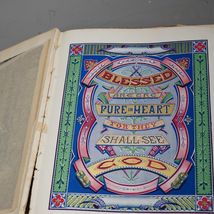 BLESSED
ARE THE
PURE IN HEART
FOR THEY
SHALL SEE
GOD